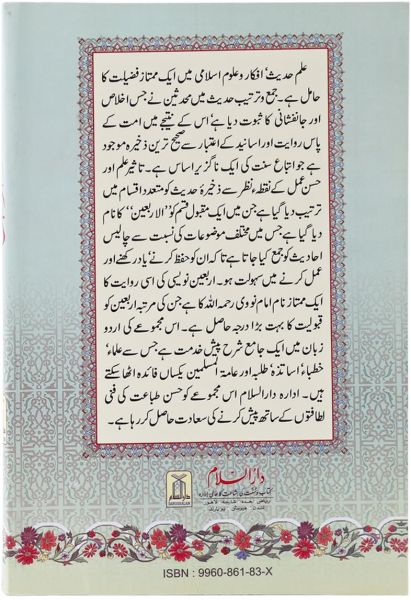 علم حدیث، افکار و علوم اسلامی میں ایک ممتاز فضیلت کا
حامل ہے۔ جمع و ترتیب حدیث میں محدثین نے جس اخلاص
اور جانفشانی کا ثبوت دیا ہے، اس کے نتیجے میں امت کے
پاس روایت اور اسانید کے اعتبار سے صحیح ترین ذخیرہ موجود
ہے جو اتباع سنت کی ایک ناگزیر اساس ہے۔ تاثیر علم اور
حسن عمل کے نقطۂ نظر سے ذخیرۂ حدیث کو متعدد اقسام میں
ترتیب دیا گیا ہے جن میں ایک مقبول قسم کو "الاربعین" کا نام
دیا گیا ہے جس میں مختلف موضوعات کی نسبت سے چالیس
احادیث کو جمع کیا جاتا ہے تاکہ ان کو حفظ کرنے، یاد رکھنے اور
عمل کرنے میں سہولت ہو۔ اربعین نویسی کی اسی روایت کا
ایک ممتاز نام امام نووی رحمہ اللہ کا ہے جن کی مرتبہ اربعین کو
قبولیت کا بہت بڑا درجہ حاصل ہے۔ اس مجموعے کی اردو
زبان میں ایک جامع شرح پیش خدمت ہے جس سے علماء،
خطباء، اساتذہ، طلبہ اور عامۃ المسلمین یکساں فائدہ اٹھا سکتے
ہیں۔ ادارہ دارالسلام اس مجموعے کو حسن طباعت کی فنی
لطافتوں کے ساتھ پیش کرنے کی سعادت حاصل کر رہا ہے۔
دارالسلام
کتاب و سنت کی اشاعت کا عالمی ادارہ
ریاض جدہ شارجہ لاہور
لندن ہیوسٹن نیویارک
DARUSSALAM
ISBN : 9960-861-83-X